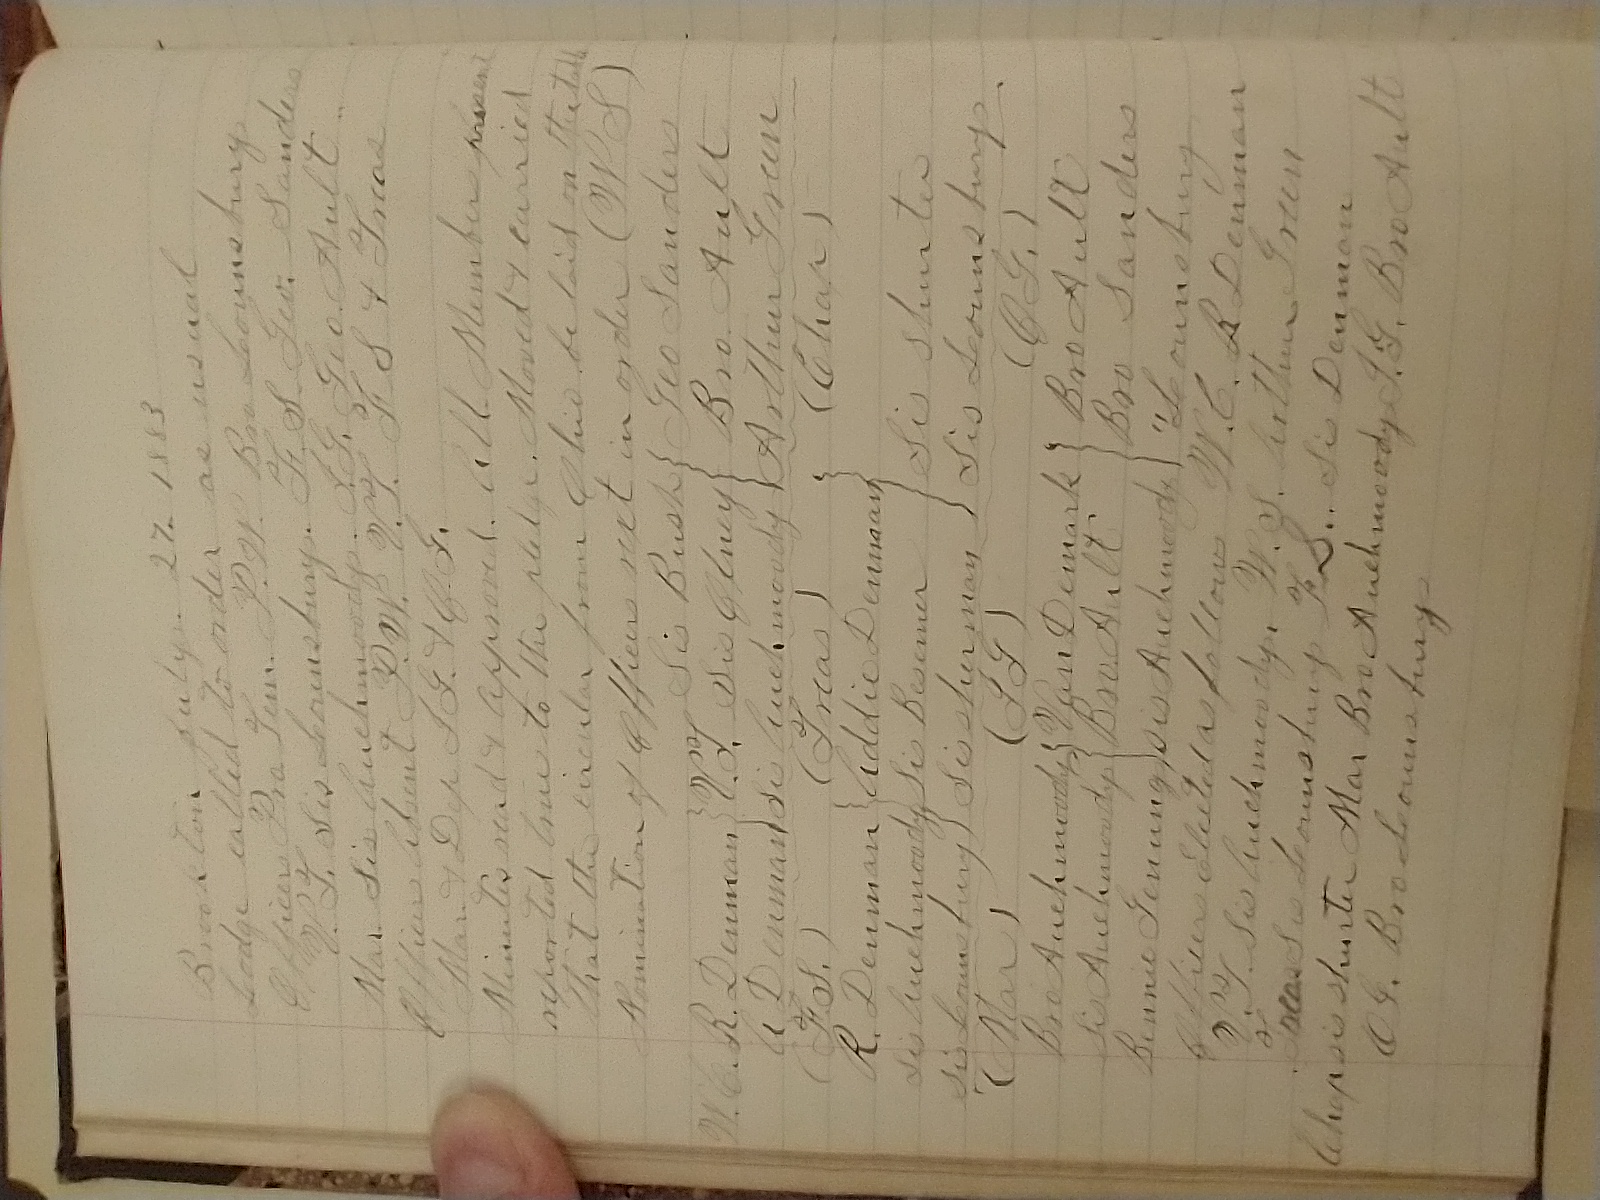 Brookton July. 27. 1883
Lodge called to order as usual
Officers Pro Tem. P.W. Bro Lounsbury
V.T. Sis Lounsbury. F.S. Geo. Sanders
Mar. Sis Auchmoody. I.G. Geo. Ault
Officers Absent P.W. V.T. F S & Treas
Mar. & Dep I G. & O.G.
Minutes read & Approved. All. Members present
reported true to the pledge. Moved & carried
that the circular from Ohio be laid on the table
Nomination of Officers next in order (W S)
Sis Bush } Geo Sanders
W.C. R. Denman } V.T. Sis Olney } Bro. Ault
A Denman } Sis Auchmoody } Arthur Green
(F.S.) (Treas) } (Chap)
R. Denman } Addie Denman }
Sis Auchmoody } Sis Besemer } Sis Shurter
Sis Lounsbury ) Sis sherman ) Sis Lounsbury
(Mar) (I G) (O G.)
Bro Auchmoody } Van Demark } Bro Ault
Sis Auchmoody } Bro. Ault } Bro Sanders
Bennie Genung } sis Auchmoody } " Lounsbury
Officers Elected as follows W.C. R Denman
V.T. Sis Auchmoody. W.S. Arthur Green
Treas Sis Lounsbury F S.. Sis Denman
Chap sis shurter Mar Bro Auchmoody I.G. Bro Ault
O G. Bro Lounsbury